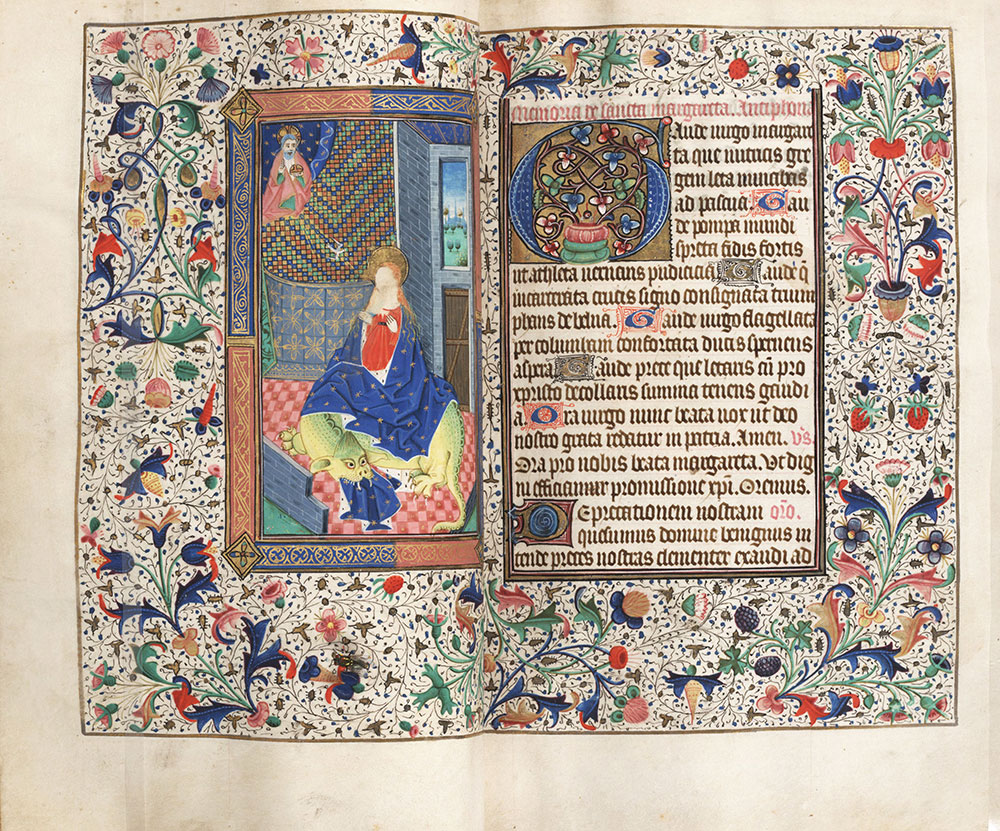 Memoria de sancta margareta. Antiphona
Gaude uirgo margare
ta que nutricis gre
gem leta minabas
ad pascua Gau
de pompa mundi
spreta fidis fortis
ut athleta uernens pudicicia Gaude q̄
incarcerata crucis signo consignata trium
phans de belua. Gaude uirgo flagellata
per columbam confortata ducis spernens
aspera Gaude prece que letaris cū pro
xpristo decollaris summa tenens gaudi
a. Ora uirgo nunc beata uox ut deo
nostro grata redatur in patria. Amen. vs̄.
Ora pro nobis beata margareta. Vt dig
ni efficiamur promissione xpī. Oremus.
Deprecationem nostram orō.
quesumus domine benignus in
tende preces nostras clementer exaudi ad